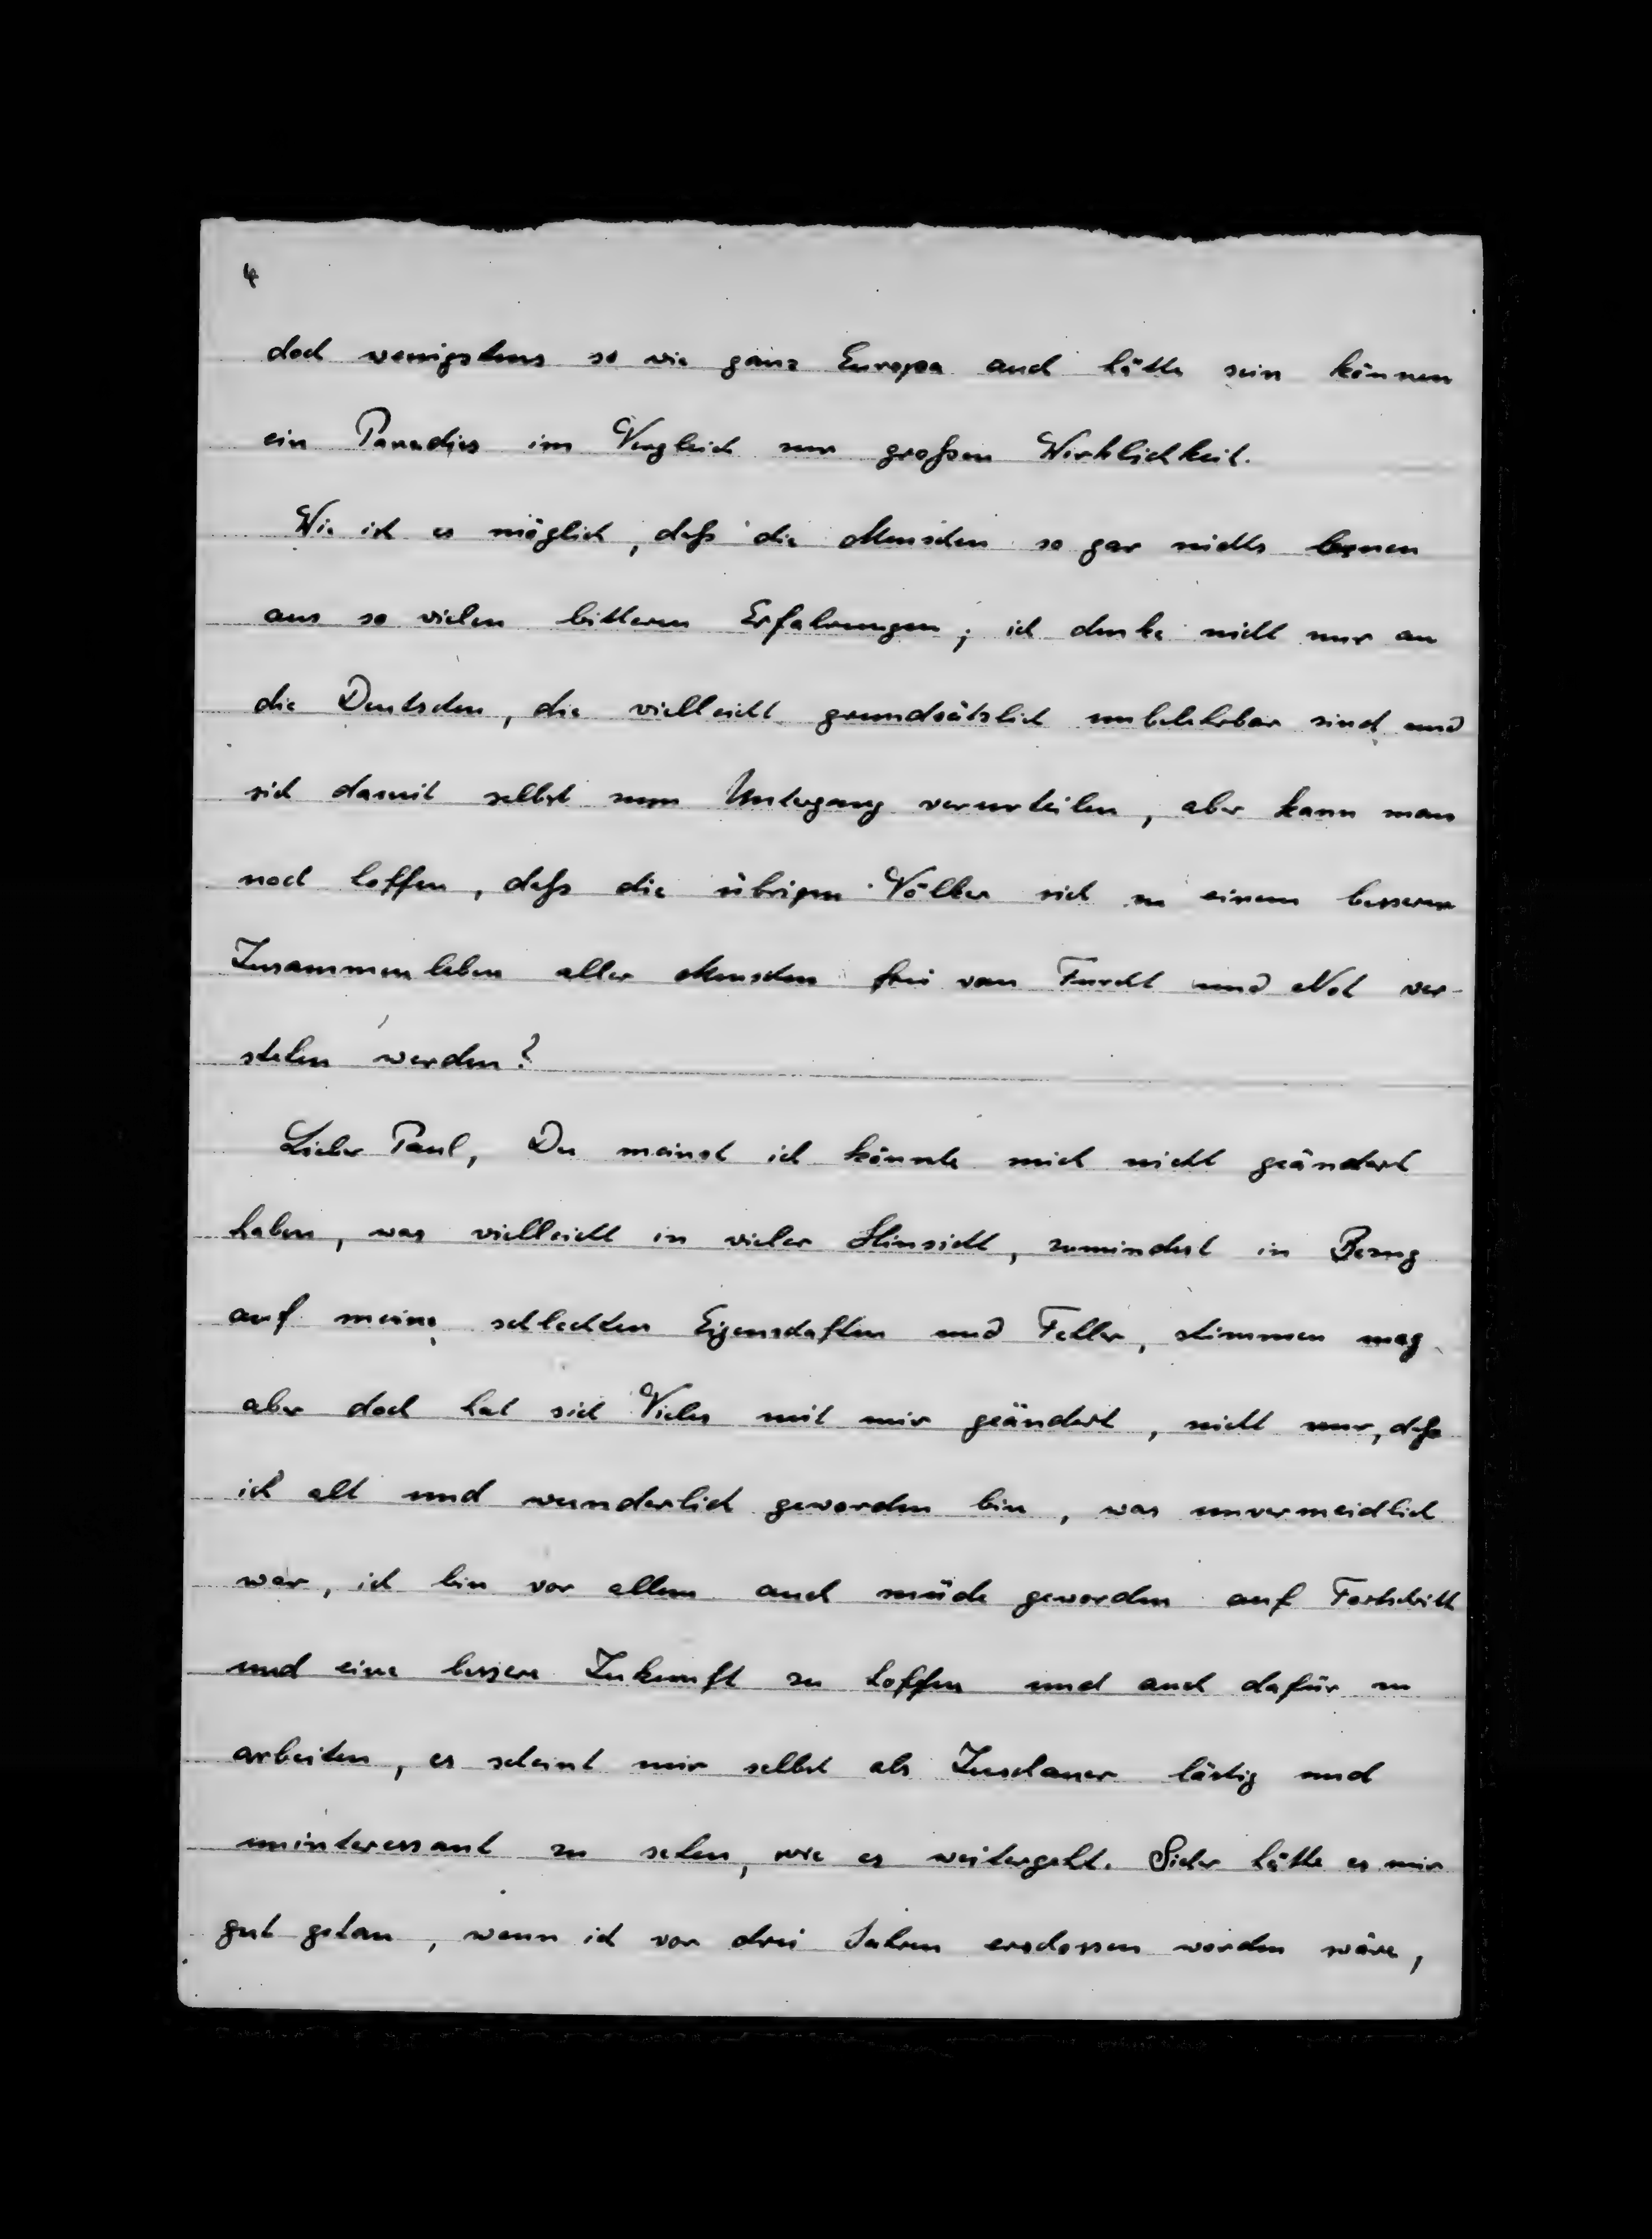 4
doch wenigstens so wie ganz Europa auch hätte sein können
ein Paradies im Vergleich zur großen Wirklichkeit.
Wie ist es möglich, daß die Menschen so gar nichts lernen
aus so vielen bitteren Erfahrungen; ich denke nicht nur an
die Deutschen, die vielleicht grundsätzlich unbelehrbar sind und
sich damit selbst zum Untergang verurteilen, aber kann man
noch hoffen, daß die übrigen Völker sich zu einem besseren
Zusammenleben aller Menschen frei von Furcht und Not ver-
stehen werden?
Lieber Paul, Du meinst ich könnte mich nicht geändert
haben, was vielleicht in vieler Hinsicht, zumindest in Bezug
auf meine schlechten Eigenschaften und Fehler, stimmen mag
aber doch hat sich Vieles mit mir geändert, nicht nur, daß
ich alt und wunderlich geworden bin, was unvermeidlich
war, ich bin vor allem auch müde geworden auf Fortschritt
und eine bessere Zukunft zu hoffen und auch dafür zu
arbeiten, es scheint mir selbst als Zuschauer lästig und
uninteressant zu sehen, wie es weitergeht. Sicher hätte es mir
gut getan, wenn ich vor drei Jahren erschossen worden wäre,